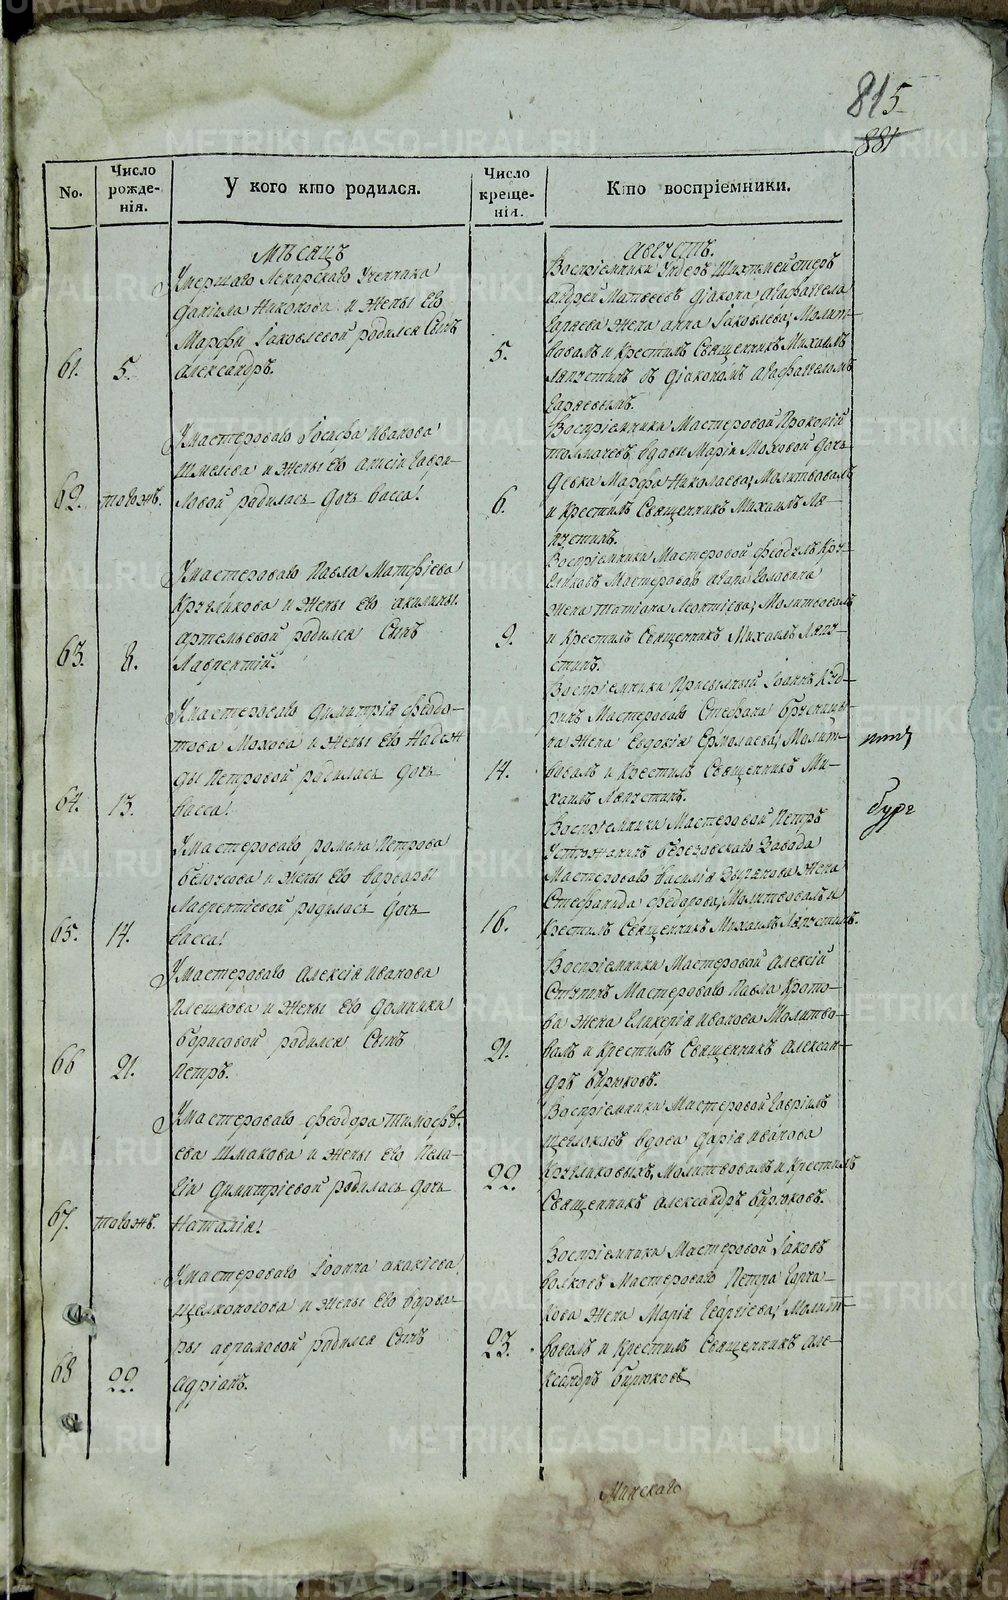 815
881
No.
Число рожде- нія.
У кого кто родился.
Число креще- нія.
Кто воспріемники.
Мѣсяцъ
Августъ.
Умершаго Лекарскаго Ученика
Данила Никонова и Жены Его
Марфы Іаковлевой родился Сынъ
61. 5. Александръ.
5.
Воспріемники Ундеръ Шихтмейстеръ
Андрей Матвеевъ Діакона Агафангела
Жена Анна Іаковлева; Молит-
вовалъ и Крестилъ Священникъ Михаилъ
Ляпустинъ съ Діакономъ Агафангеломъ
Умастероваго Іосифа Иванова
Шмелева и Жены Его Анисіи Гаври-
62. тогожъ. ловой родилась Дочь Васса!
6.
Воспріемники Мастеровой Прокопій
Толмачевъ вдовы Маріи Моховой Дочь
Девка Марфа Николаева; Молитвовалъ
и Крестилъ Священникъ Михаилъ Ля-
пустинъ.
Умастероваго Павла Матфіева
Кругликова и Жены Его Акилины
Артемьевой родился Сынъ
63. 8. Лаврентій.
9.
Воспріемники Мастеровой Феодулъ Кру-
гликовъ Мастероваго Головина
Жена Татіана Леонтіева; Молитвовалъ
и Крестилъ Священникъ Михаилъ Ляпу-
стинъ.
Умастероваго Димитрія Феодо-
това Мохова и Жены Его Надеж
ды Петровой родилась Дочь
64. 13. Васса!
14.
Воспріемники Присыльный Іоаннъ Куд-
ринъ Мастероваго Стефана Брусницы-
на Жена Евдокія Ермолаева; Молит-
вовалъ и Крестилъ Священникъ Ми-
хаилъ Ляпустинъ.
Умастероваго Романа Петрова
Белоусова и Жены Его Варвары
Лаврентіевой родилась Дочь
65. 14. Васса!
16.
Воспріемники Мастеровой Петръ
Устюжанинъ Березовскаго Завода
Мастероваго Василія Зырянова Жена
Стефанида Федорова, Молитвовалъ и
Крестилъ Священникъ Михаилъ Ляпустинъ.
Умастероваго Алексія Иванова
Плешкова и Жены Его Домники
Борисовой родился Сынъ
66 21. Петръ.
21.
Воспріемники Мастеровой Алексій
Ступинъ Мастероваго Павла Крото-
ва Жена Гликерія Иванова Молитво-
валъ и Крестилъ Священникъ Алексан-
дръ Бирюковъ.
Умастероваго Феодора Тимофѣ-
ева Шмакова и Жены Его Пела-
гіи Димитріевой родилась Дочь
67. тогожъ. Наталія!
22.
Воспріемники Мастеровой Гавріилъ
Щегловъ вдова Дарія Иванова
Кругликовыхъ, Молитвовалъ и Крестилъ
Священникъ Александръ Бирюковъ.
Умастероваго Іоанна Акакіева
Щелконогова и Жены Его Варва-
ры Абрамовой родился Сынъ
68 22. Адріанъ.
23.
Воспріемники Мастеровой Іаковъ
Волковъ Мастероваго Петра
Жена Марія Георгіева; Молит-
вовалъ и Крестилъ Священникъ Але-
ксандръ Бирюковъ
Минскаго
METRIKI.GASO-URAL.RU